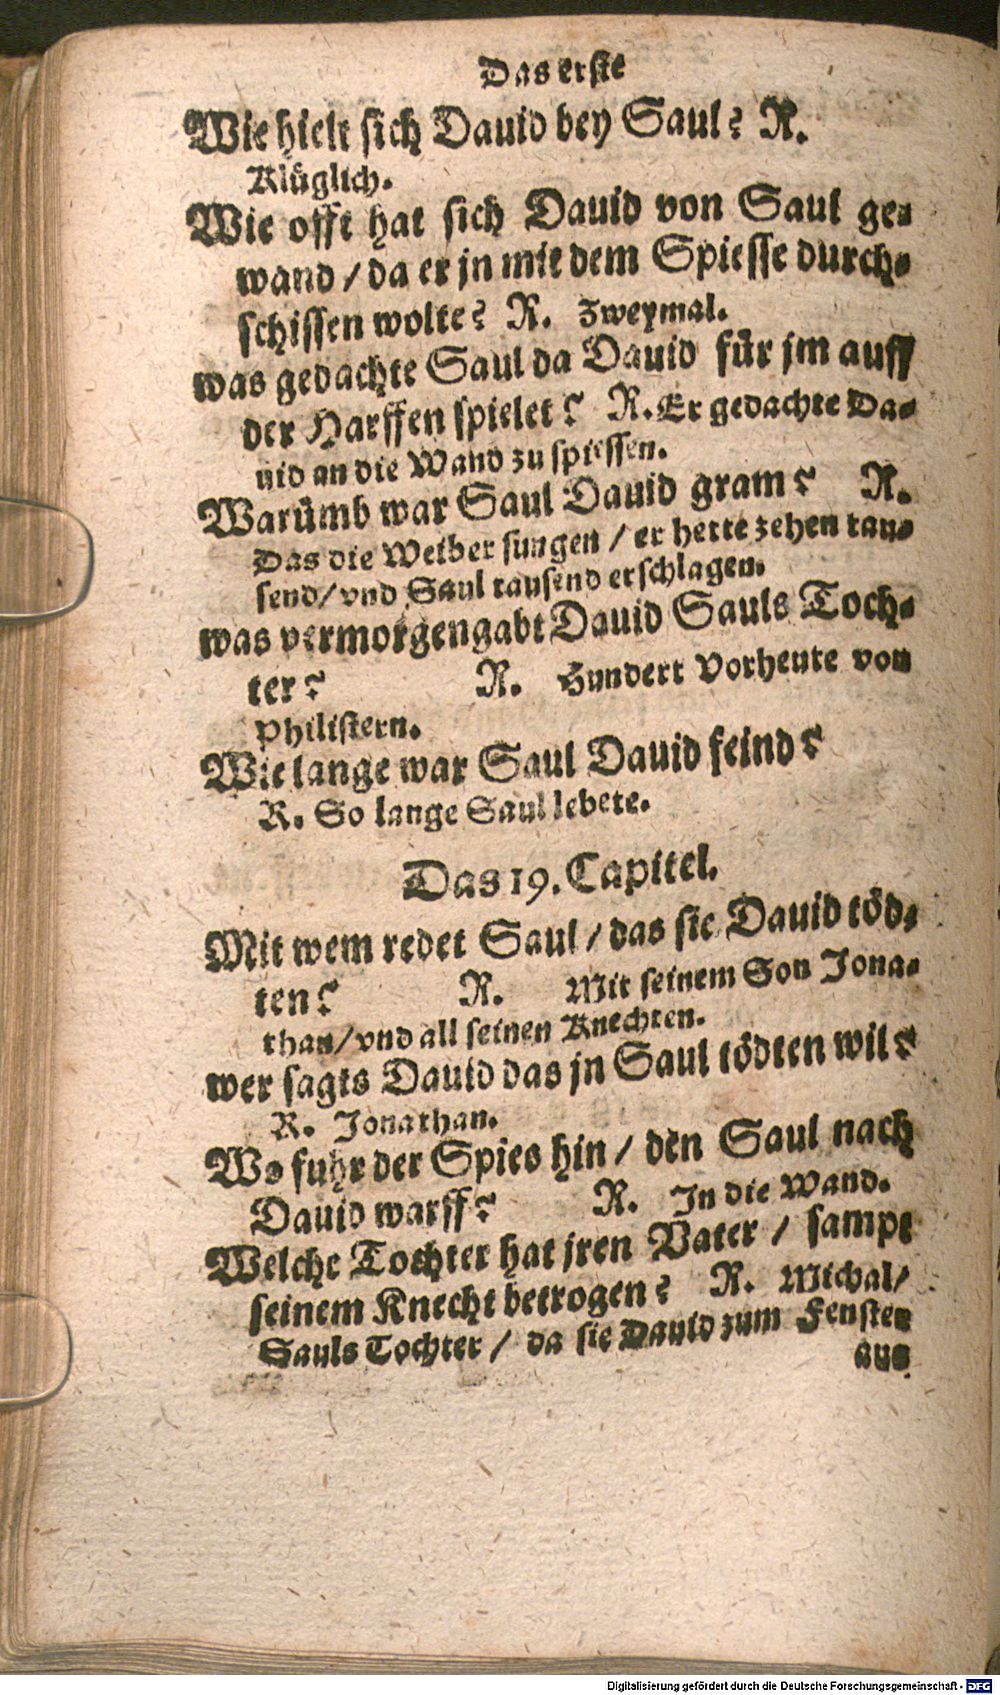 Das erste
Wie hielt sich Dauid bey Saul? R.
Klüglich.
Wie offt hat sich Dauid von Saul ge-
wand / da er jn mit dem Spiesse durch-
schissen wolte? R. Zweymal.
was gedachte Saul da Dauid für jm auff
der Harffen spielet? R. Er gedachte Da-
uid an die Wand zu spiessen.
Warümb war Saul Dauid gram? R.
Das die Weiber sungen / er hette zehen tau-
send / vnd Saul tausend erschlagen.
was vermorgengabt Dauid Sauls Toch-
ter? R. Hundert Vorheute von
Philistern.
Wie lange war Saul Dauid feind?
R. So lange Saul lebete.
Das 19. Capitel.
Mit wem redet Saul / das sie Dauid töd-
ten? R. Mit seinem Son Jona-
than / vnd all seinen Knechten.
wer sagts Dauid das jn Saul tödten wil?
R. Jonathan.
Wo fuhr der Spies hin / den Saul nach
Dauid warff? R. In die Wand.
Welche Tochter hat jren Vater / sampt
seinem Knecht betrogen? R. Michal /
Sauls Tochter / da sie Dauid zum Fenster
aus
Digitalisierung gefördert durch die Deutsche Forschungsgemeinschaft - DFG